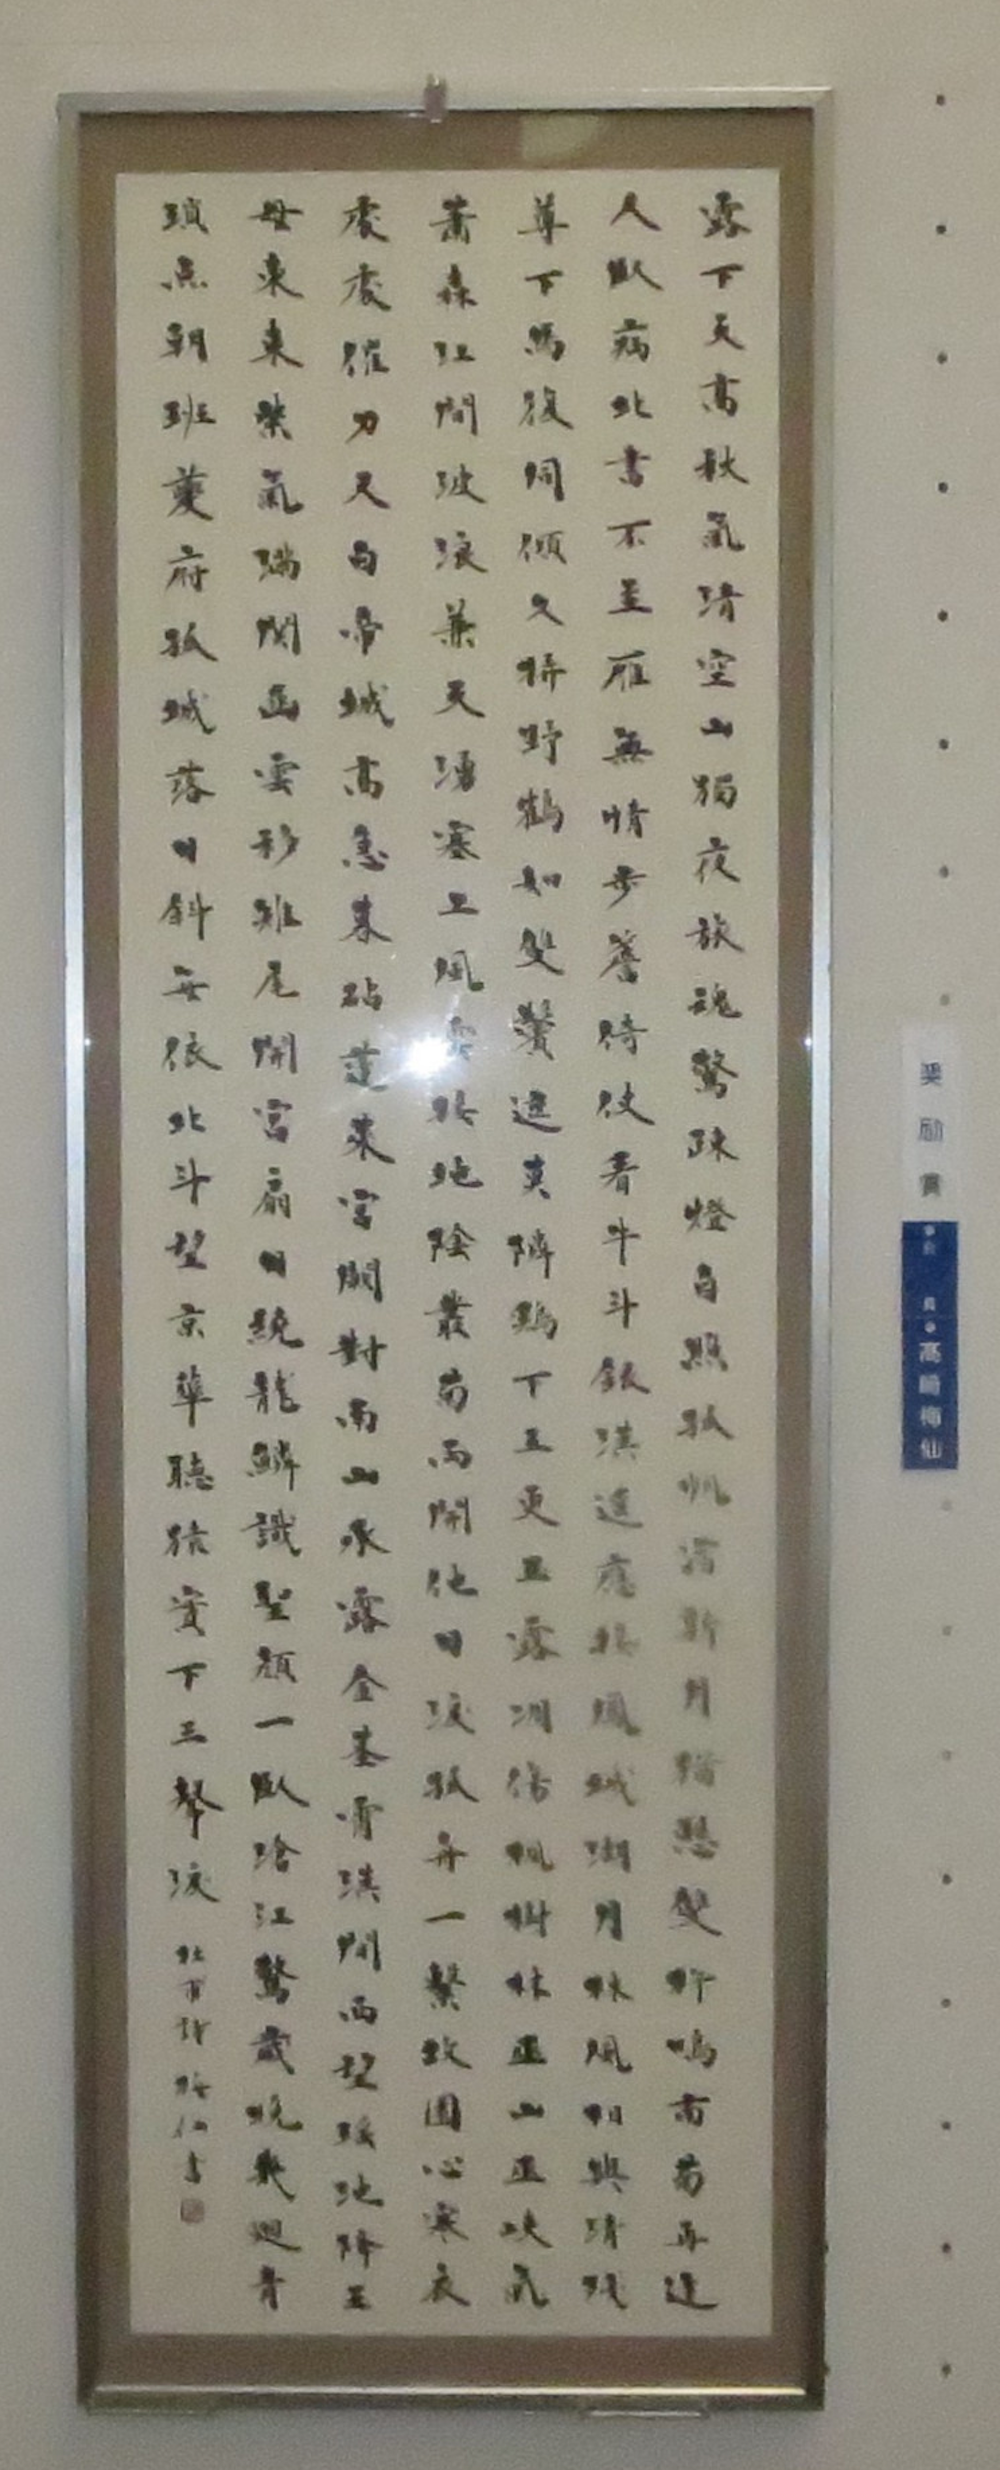 露下天高秋氣清空山獨夜旅魂驚疎燈自照孤帆宿新月猶懸雙杵鳴南菊再逢
人臥病北書不至雁無情步蟾倚仗看牛斗銀漢遙應接鳳城湖月林風相與清殘
尊下馬復同傾久拚野鶴如雙鬢遮莫隣鷄下五更玉露凋傷楓樹林巫山巫峽氣
蕭森江間波浪兼天湧塞上風雲接地陰叢菊兩開他日淚孤舟一繫故園心寒衣
處處催刀尺白帝城高急暮砧蓬萊宮闕對南山承露金莖霄漢間西望瑤池降王
母東來紫氣滿関函雲移雉尾開宮扇日繞龍鱗識聖顏一臥滄江驚歲晚幾廻青
瑣点朝班夔府孤城落日斜每依北斗望京華聽猿實下三聲淚 杜甫詩 梅仙書
奨励賞
会員 高崎梅仙